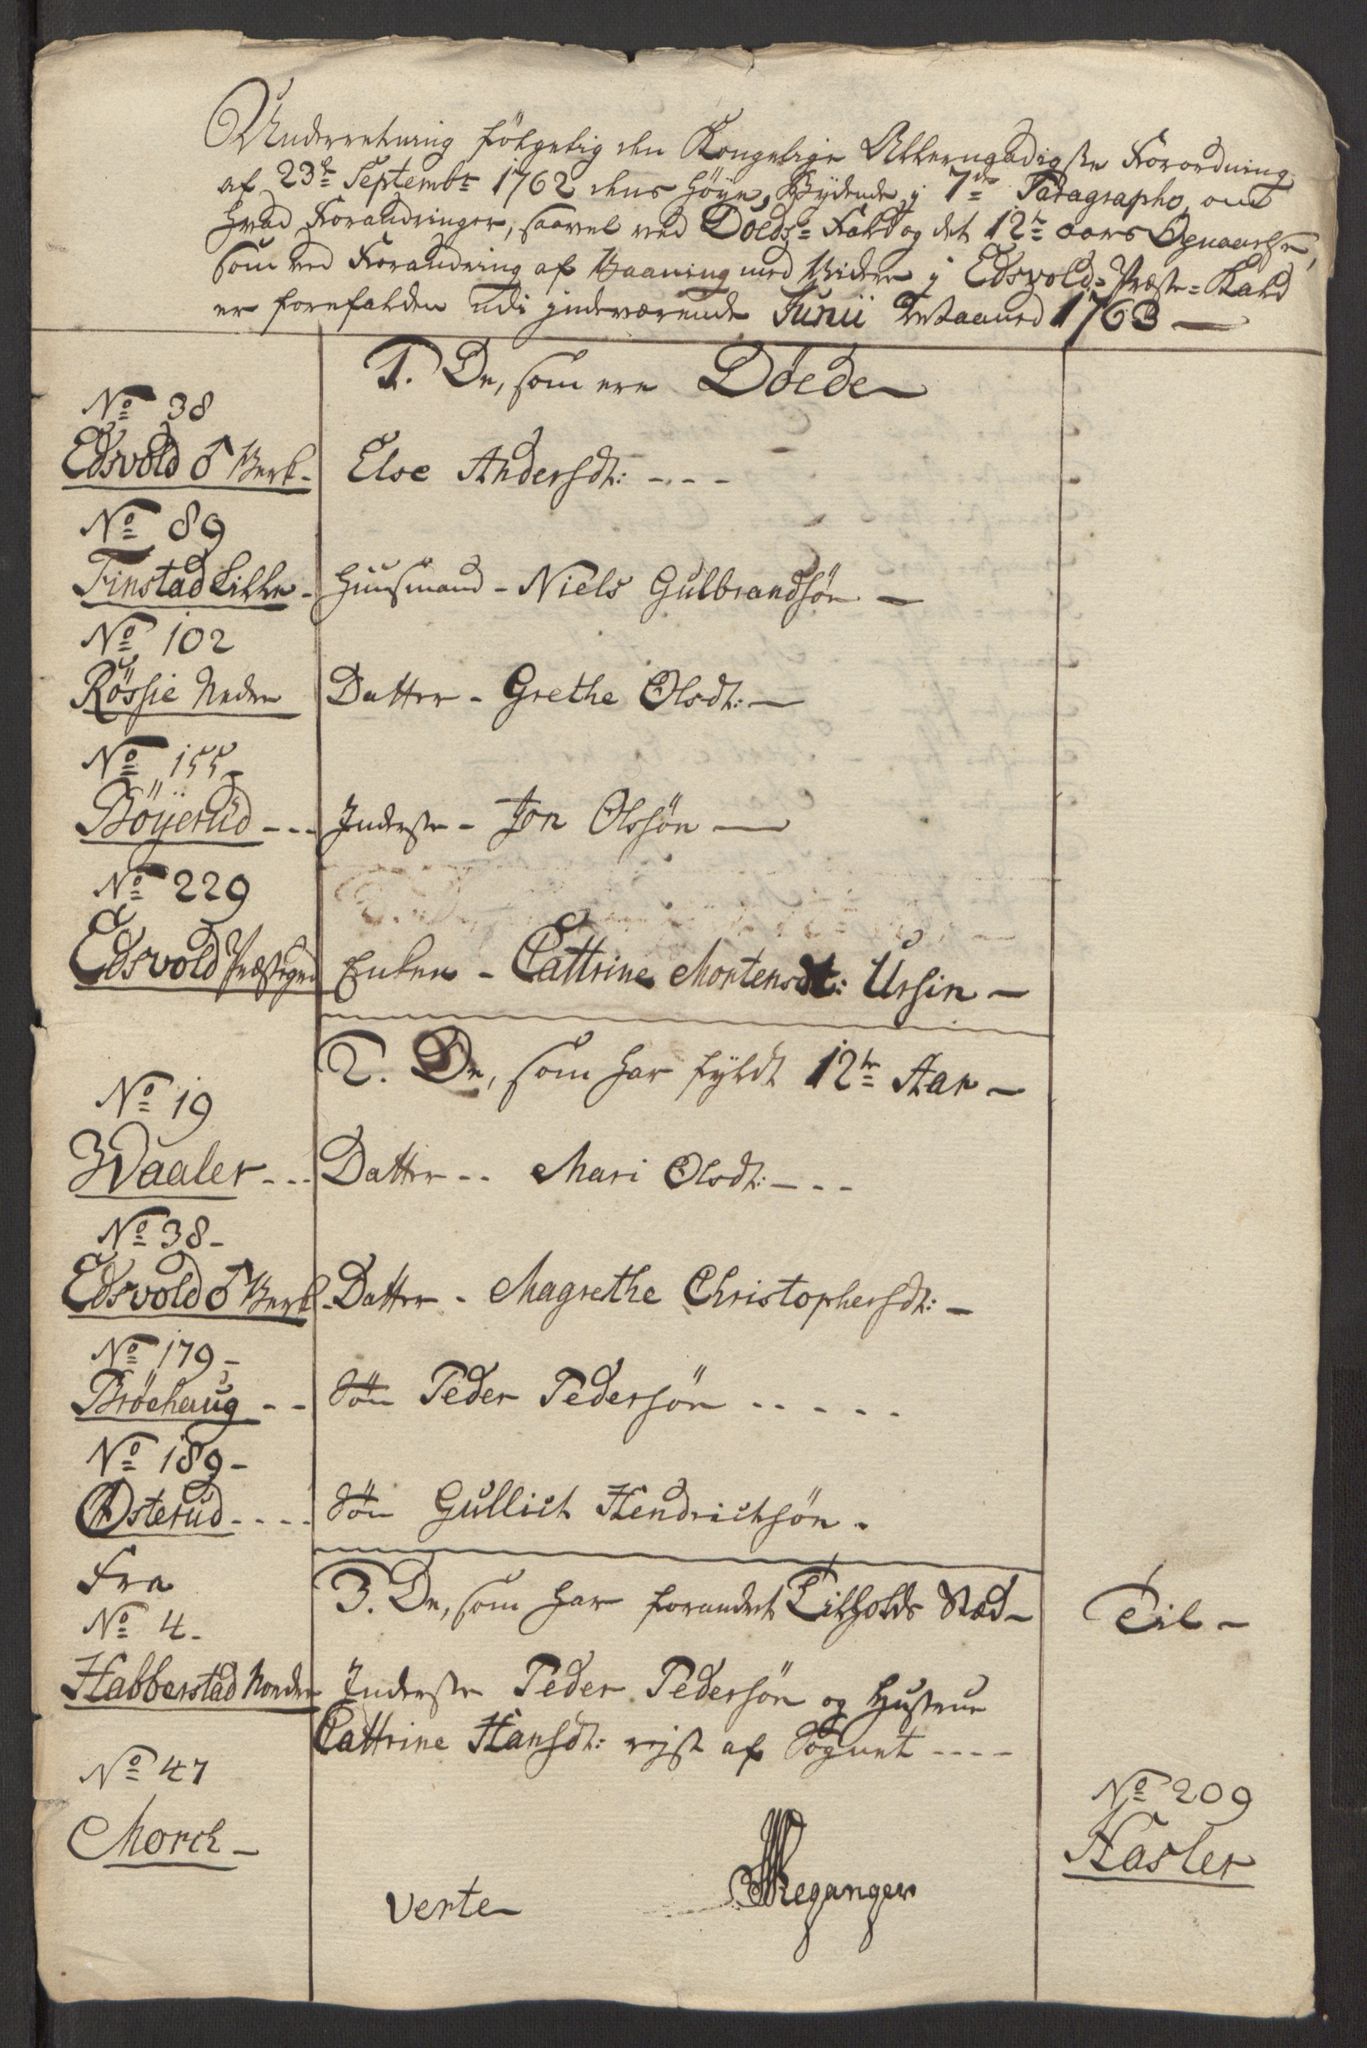 Underretning fölgelig den Kongelige Allernaadigste Forordning
af 23de Septembr 1762 dens höye Bydende, j 7de Paragrapho, om
hvad Forandringer, saavel ved Döds-Fald og det 12te aars
som ved Forandring af Vaaning med Videre j Edsvold-Præste-Kald
er forefalden udi jndeværende Junii Maaned 1763
1. De, som ere Döede
No 38
Edsvold ♂ Verk - Else Andersdt:
No 89
Finstad Lille - Huusmand - Niels Gulbrandsön
No 102
Rössie Neder Datter - Grethe Olsdt:
No 155
Böÿerud - Inderste - Jon Olssön
No 229
Edsvold Præstegrd Enken - Cattrine Mortensdt: Ursin
2. De, som har fyldt 12te Aar
No 19
Waaler Datter - Mari Olsdt:
No 38
Edsvold ♂ Verk - Datter - Magrethe Christophersdt:
No 179
Bröehaug Sön Peder Pedersön
No 189
Østerud Sön Gullich Hendrichsön
Fra 3. De, som har forandret Tilholds Stæd Til
No 4
Habberstad Nordre Inderste Peder Pedersön og Hustrue
Cattrine Hansdt: rejst af Sognet
No 47 No 209
Morch Hasler
Verte